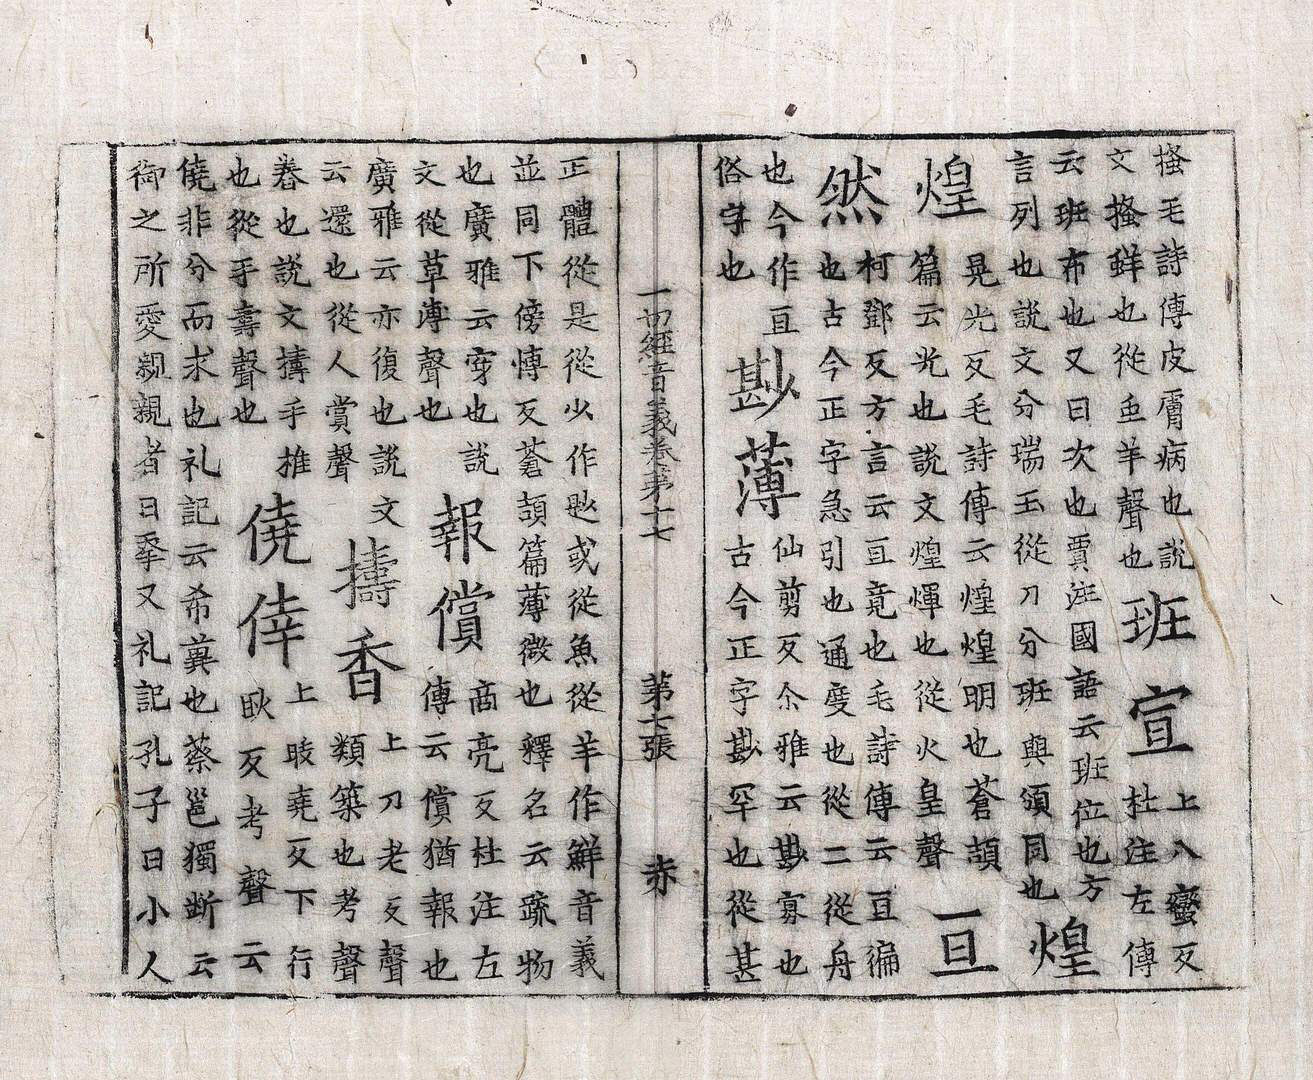 搔毛詩傳皮膚病也說
文搔鮮也從虫羊聲也
班宣
上八蠻反
杜注左傳
云班布也又曰次也賈注國語云班位也方
言列也說文分瑞玉從刀分班與頒同也
煌煌
晃光反毛詩傳云煌煌明也蒼頡
篇云光也說文煌煇也從火皇聲
亘然
柯鄧反方言云亘竟也毛詩傳云亘徧
也古今正字急引也通度也從二從舟
也今作亘
俗字也
尟薄
仙剪反尒雅云尟寡也
古今正字尟罕也從甚
一切經音義卷第十七 第七張 赤
正體從是從少作尟或從魚從羊作鮮音義
並同下傍愽反蒼頡篇薄微也釋名云䟽物
也廣雅云穿也說
文從草溥聲也
報償
商亮反杜注左
傳云償猶報也
廣雅云亦復也說文
云還也從人賞聲
擣香
上刀老反聲
類築也考聲
舂也說文擣手推
也從手壽聲也
僥倖
上晈堯反下行
耿反考聲云
僥非分而求也礼記云希兾也蔡邕獨斷云
御之所愛親親者曰㚔又礼記孔子曰小人